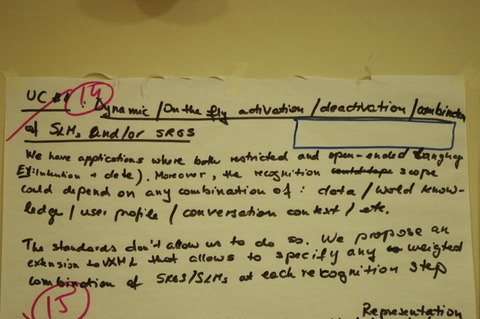 UC #8 14. Dynamic / On the fly activation / deactivation / combination
of SLMs and/or SRGS
We have applications where both restricted and open-ended language
EX: intention + date). Moreover, the recognition scope
could depend on any combination of: data / world know-
ledge / user profile / conversation context / etc.
The standards don't allow us to do so. We propose an
extension to VXML that allows to specify any weigted
combination of SRGS/SLMs at each recognition step
15
Representation